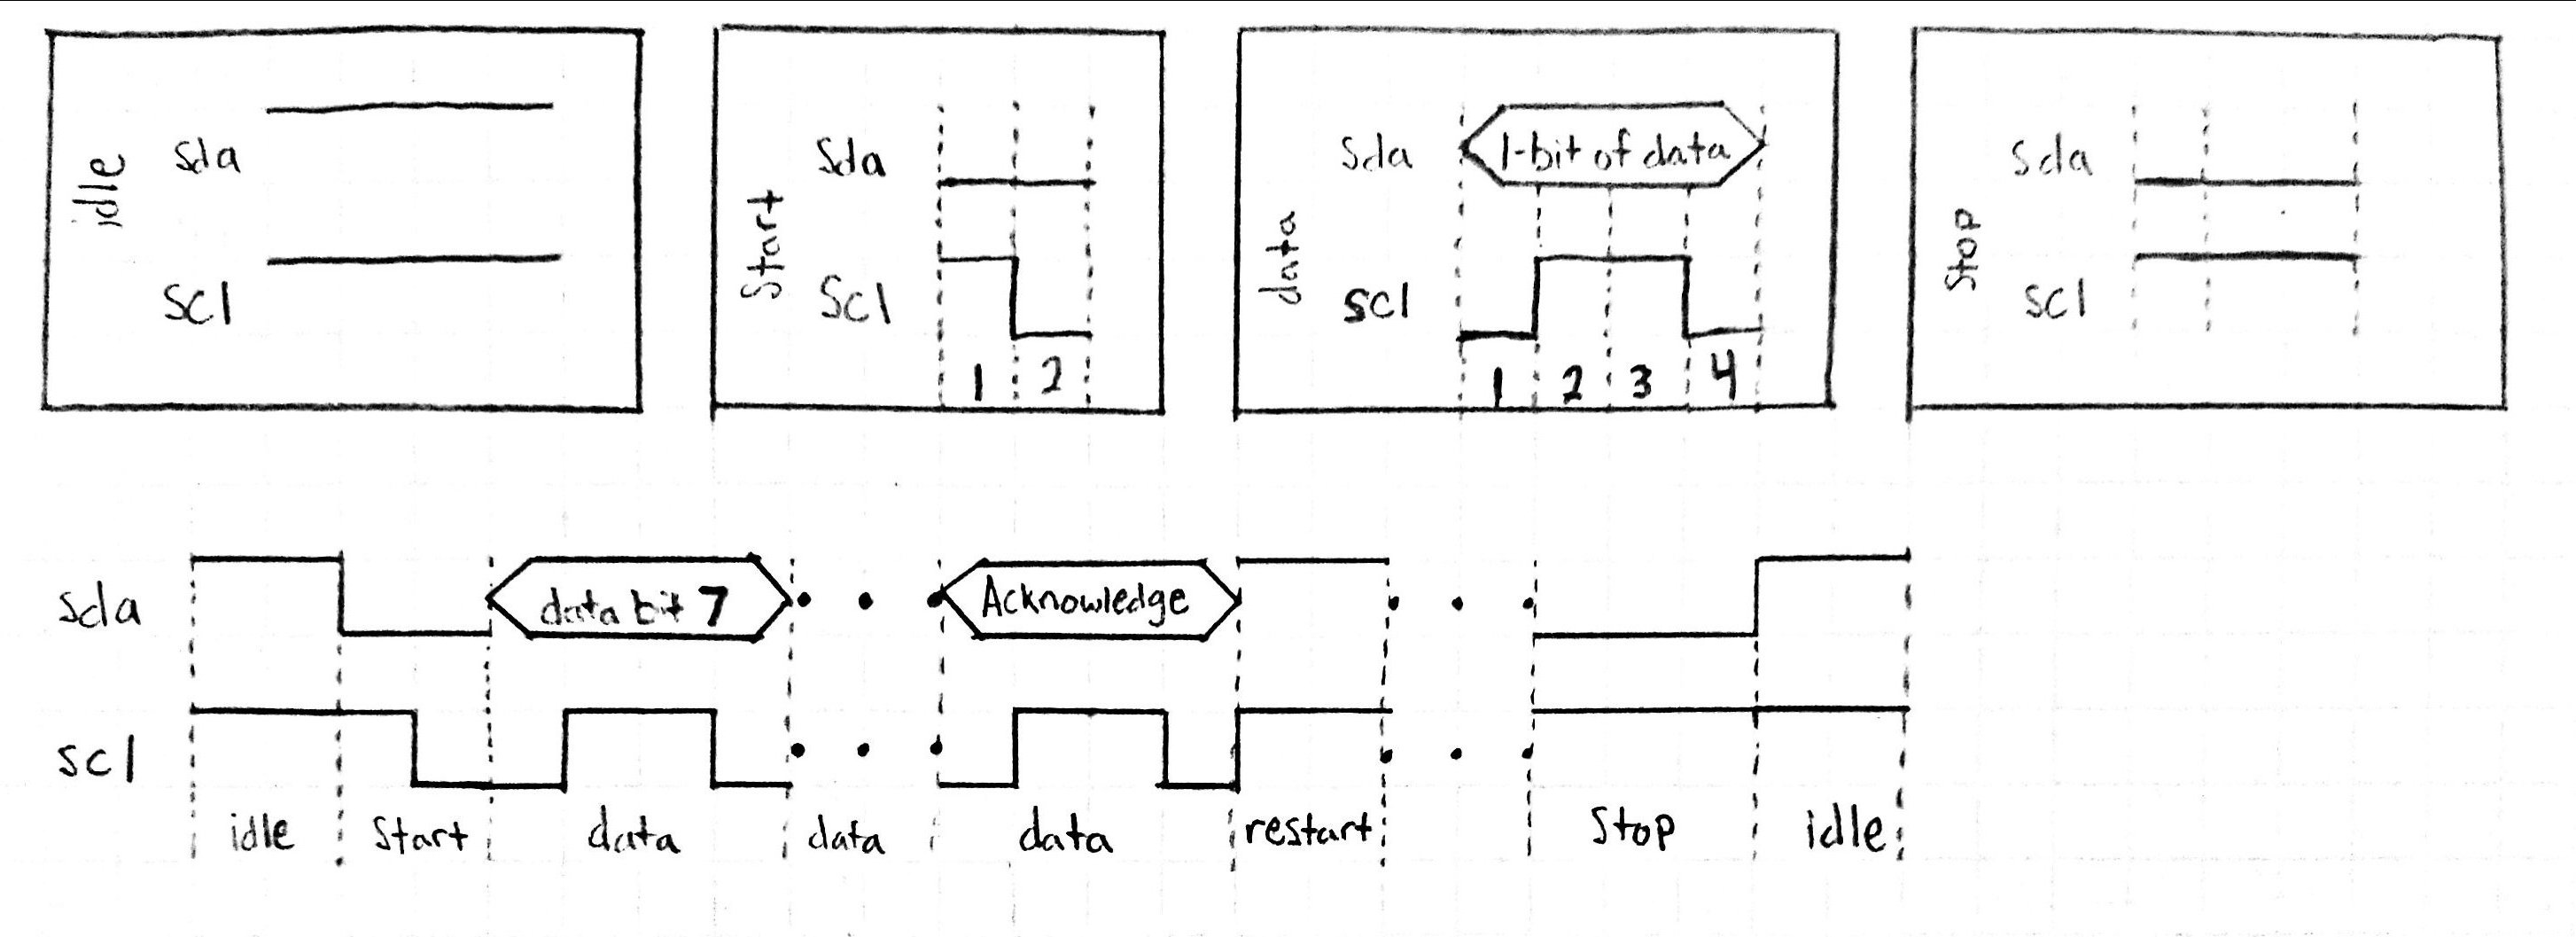 idle
sda
scl
Start
Sda
Scl
1 2
data
Sda
1-bit of data
scl
1 2 3 4
Stop
Sda
scl
sda
data bit 7
Acknowledge
scl
idle Start data data data restart Stop idle